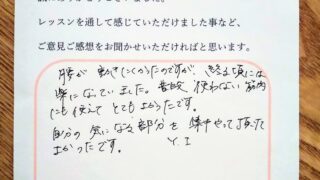 レッスンを通して感じていただけました事など、
ご意見ご感想をお聞かせいただければと思います。
膝が動きにくかったのですが、終る頃には
楽になっていました。普段使わない筋肉
にも使えてとてもよかったです。
自分の気になる部分を集中やって頂いて
よかったです。 Y. I